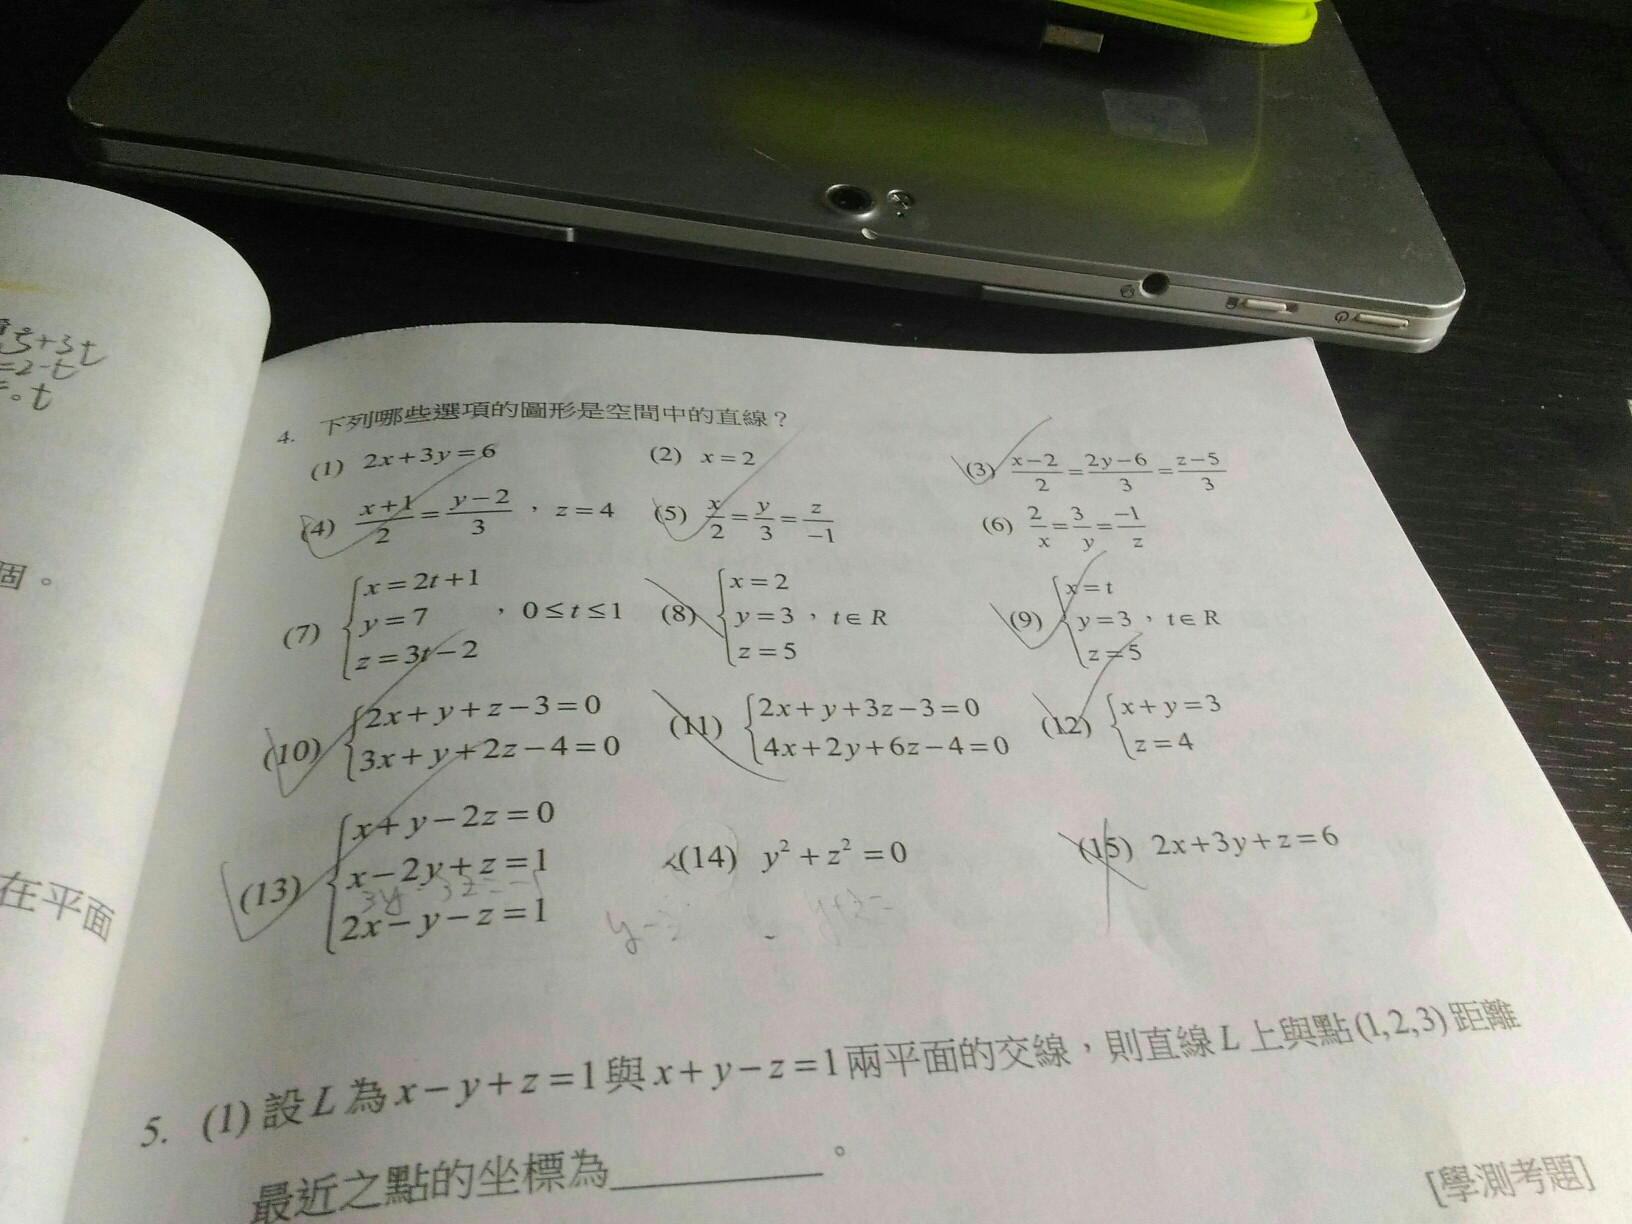 =2-t
個。
在平面
4. 下列哪些選項的圖形是空間中的直線？
(1) 2x+3y=6 (2) x=2 (3) \frac{x-2}{2}=\frac{2y-6}{3}=\frac{z-5}{3}
(4) \frac{x+1}{2}=\frac{y-2}{3}，z=4 (5) \frac{x}{2}=\frac{y}{3}=\frac{z}{-1} (6) \frac{2}{x}=\frac{3}{y}=\frac{-1}{z}
(7) {x=2t+1, y=7, z=3t-2，0≤t≤1 (8) {x=2, y=3, z=5，t∈R (9) {x=t, y=3, z=5，t∈R
(10) {2x+y+z-3=0, 3x+y+2z-4=0 (11) {2x+y+3z-3=0, 4x+2y+6z-4=0 (12) {x+y=3, z=4
(13) {x+y-2z=0, x-2y+z=1, 2x-y-z=1 (14) y²+z²=0 (15) 2x+3y+z=6
5. (1) 設L為x-y+z=1與x+y-z=1兩平面的交線，則直線L上與點(1,2,3)距離
最近之點的坐標為＿＿＿＿。
[學測考題]